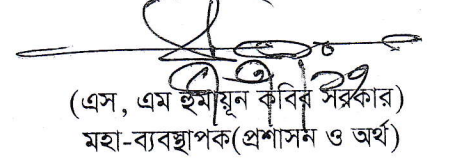 (এস, এম হুমায়ূন কবির সরকার)
মহা-ব্যবস্থাপক(প্রশাসন ও অর্থ)